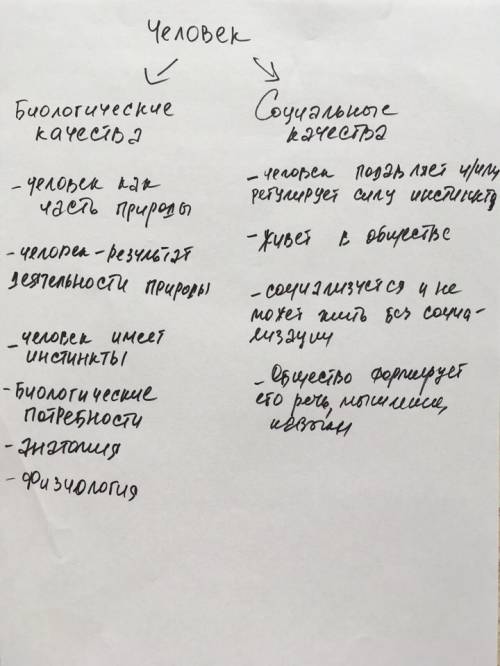 Человек
Биологические
качества
- человек как
часть природы
- человек - результат
деятельности природы
- человек имеет
инстинкты
- Биологические
потребности
- Анатомия
- Физиология
Социальные
качества
- человек подавляет и/или
регулирует силу инстинкта
- живёт в обществе
- социализуется и не
может жить без социа-
лизации
- Общество формирует
его речь, мышление,
навыки